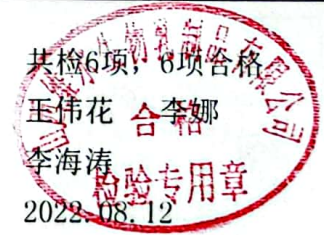 共检6项，6项合格
王伟花 李娜
李海涛
2022.08.12
合格
检验专用章